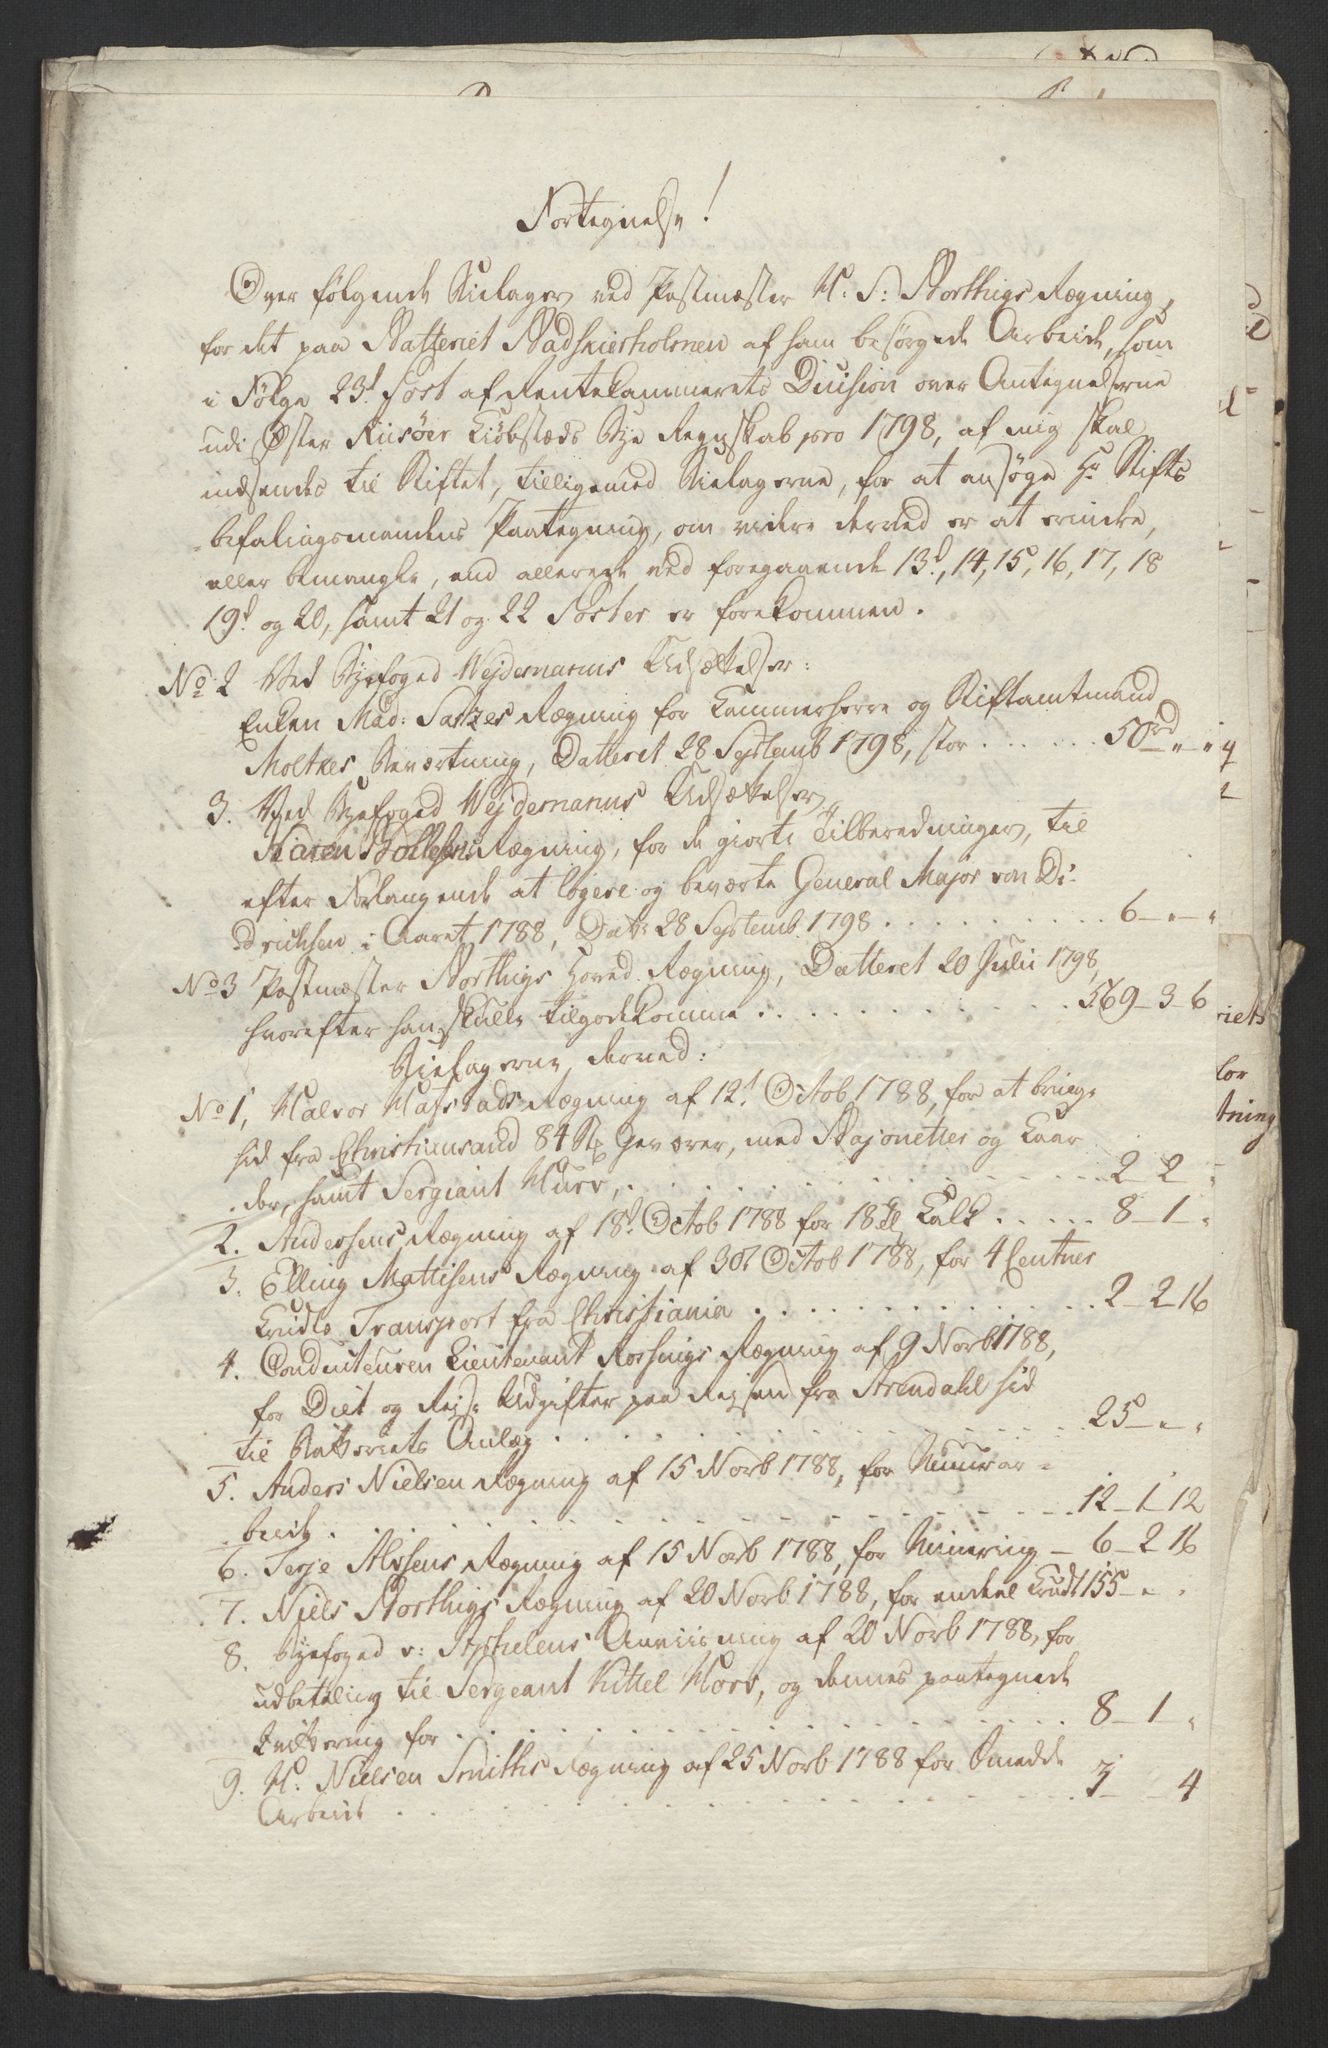 Fortegnelse!
Over følgende Bielager ved Postmester H: S: Northigs Regning,
for det paa Batteriet Stadskiersholmen af ham besørgede Arbeide, som
i Følge 23d. Post af Rentekammerets Decision over Antegnelserne
udi Øster Riisöer Kiöbstæds Bye Regnskab pro 1798, af mig skal
indsendes til Stiftet, tilligemed Bielagerne, for at ansøge Hr Stifts
befalingsmandens Paategning, om videre derved er at erindre,
eller bemangle, end allerede ved foregaaende 13d., 14, 15, 16, 17, 18
19d. og 20, samt 21 og 22 Poster er forekommen.
No 2 Ved Byefoged Wejdemanns Udsættelser:
Enken Mad: Rægning for Kammerherre og Stiftamtmand
Moltkes Beværtning, Datteret 28 Septemb 1798, stor . . . . . . 50rd " "
3. Ved Byefoged Wejdemanns Udsættelser,
Karen Rægning, for de giorte Tilberedninger, til
efter Forlangende at logere og beværte General Major von Di-
drichsen i Aaret 1788, Dat: 28 Septemb 1798 . . . . . . . . . 6 - " - "
No 3 Postmester Northigs Hoved Rægning, Datteret 20 Julii 1798,
hvorefter han skulle tilgodekomme . . . . . . . . . . 569 - 3 - 6
Bielagerne derved:
No 1, Halvor Hafstads Rægning af 12d. Octob 1788, for at bringe
hid fra Christiansand 84 St. Geværer, med Bajonetter og Kaar
der, samt Sergiant Hurv, . . . . . . . . . . . . 2 - 2 - "
2. Andersens Rægning af 18d. Octob 1788 for 18 Kalk . . . . . 8 - 1 - "
3. Elling Mattisens Rægning af 30d Octob 1788, for 4 Centner
Krudts Transport fra Christiania . . . . . . . . . . 2 - 2 16
4. Conducteuren Lieutenant Rosings Rægning af 9 Novb 1788,
for Diet og Reise Udgifter paa Rejsen fra Arendahl hid
til Batteriets Anlæg . . . . . . . . . . . . . . . 25 - " - "
5. Anders Nielsen Rægning af 15 Novb 1788, for Muurar-
beide . . . . . . . . . . . . . . . . 12 - 1 - 12
6. Terje Alvsens Rægning af 15 Novb 1788, for Minering - 6 - 2 16
7. Niels Northigs Rægning af 20 Novb 1788, for endeel Krudt 155 - " "
8. Byefoged v: Aphelens Anviisning af 20 Novb 1788, for
udbetaling til Sergeant Kittel Horv, og dennes paategnede
Qvittering for . . . . . . . . . . . . . . . 8 - 1 - "
9. H. Nielsen Smiths Rægning af 25 Novb 1788 for Smedde
Arbeide . . . . . . . . . . . . . . . . 3 - - 4